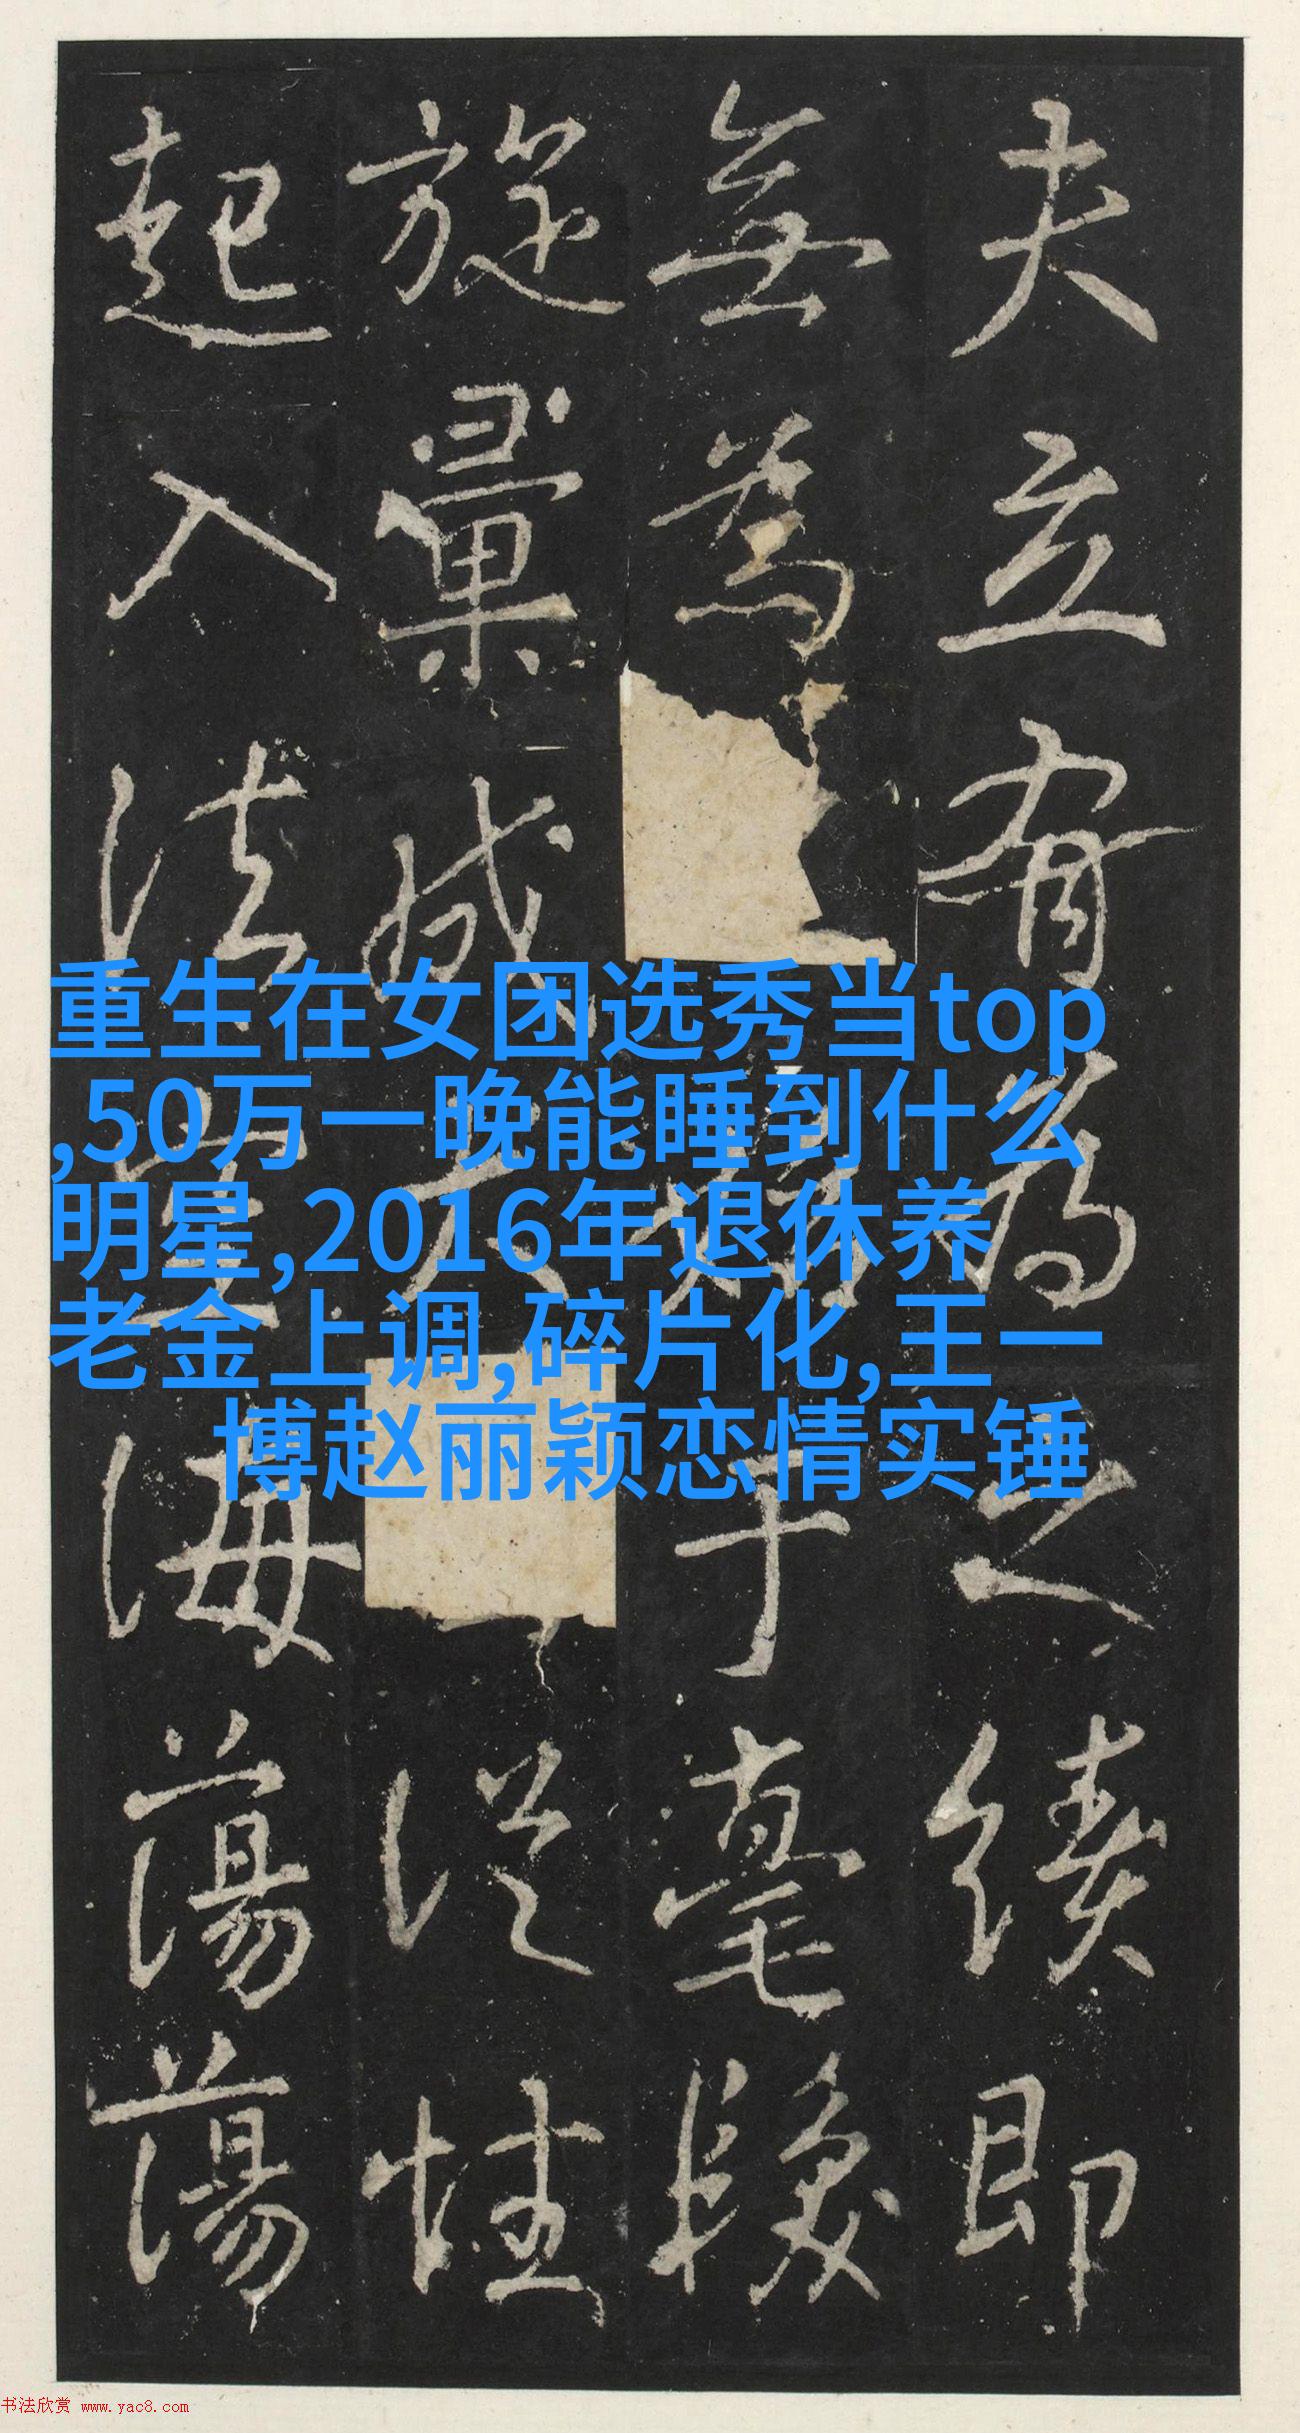 夫立有為之績即
無為于毫
旋彙成從性
起入法海蕩蕩
重生在女团选秀当top
,50万一晚能睡到什么
明星,2016年退休养
老金上调,碎片化,王一
博赵丽颖恋情实锤
书法欣赏 www.yac8.com